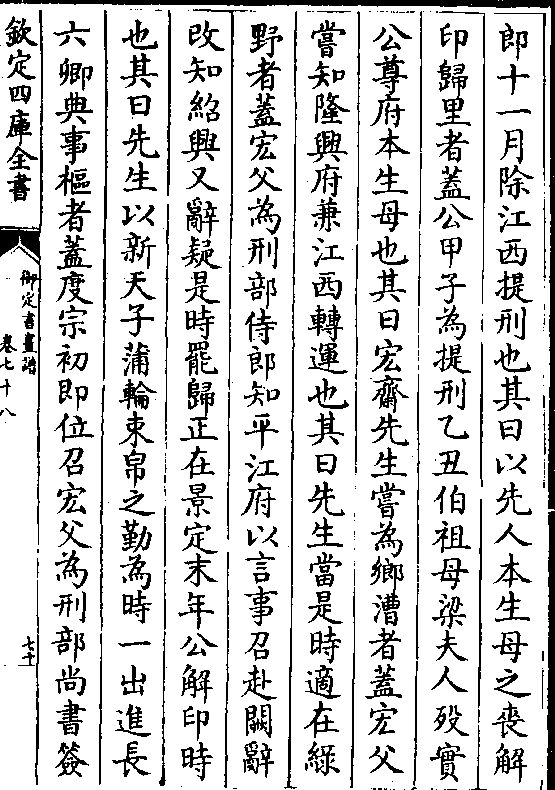 郎十一月除江西提刑也其曰以先人本生母之喪解
印歸里者蓋公甲子為提刑乙丑伯祖母梁夫人歿實
公尊府本生母也其曰宏齋先生嘗為鄉漕者蓋宏父
嘗知隆興府兼江西轉運也其曰先生當是時適在綠
野者蓋宏父為刑部侍郎知平江府以言事召赴闕辭
改知紹興又辭疑是時罷歸正在景定末年公解印時
也其曰先生以新天子蒲輪束帛之勤為時一出進長
六卿典事樞者蓋度宗初即位召宏父為刑部尚書簽
欽定四庫全書
御定書畫譜
卷七十八
七十